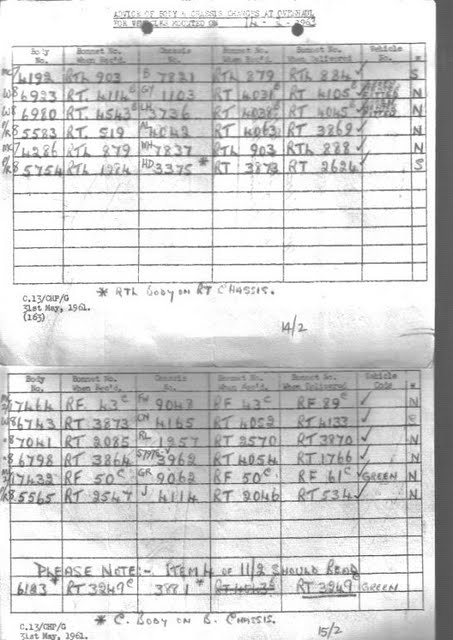 ADVICE OF BODY & CHASSIS CHANGES AT OVERHAUL
FOR VEHICLES MOUNTED ON 14 - 2 - 1963
Body No. Bonnet No. When Rec'd. Chassis No. Bonnet No. When Rec'd. Bonnet No. When Delivered Vehicle No. *
4192 RTL 903 B 7821 RTL 879 RTL 884 ✓ S
W8 6923 RT 4114 B GY 1103 RT 4031 B RT 4105 B N
W8 6980 RT 4543 B LH 3736 RT 4038 B RT 4045 B N
P/R 8 5583 RT 519 AL 4042 RT 4063 RT 3869 ✓ N
4286 RTL 879 MH 7837 RTL 903 RTL 888 ✓ N
P/R 8 5754 RTL 1284 HD 3375 * RT 3873 RT 2624 ✓ S
* RTL BODY ON RT CHASSIS.
C.13/CHF/G
31st May, 1961.
(163)
14/2
Body No. Bonnet No. When Rec'd. Chassis No. Bonnet No. When Rec'd. Bonnet No. When Delivered Vehicle Code *
17464 RF 43 C FW 9048 RF 43 C RF 89 C ✓ N
W8 6743 RT 3873 CN 4165 RT 4052 RT 4133 ✓ S
8 7041 RT 2085 RL 1257 RT 2570 RT 3870 ✓ N
8 6798 RT 3864 3962 RT 4054 RT 1766 ✓ N
17432 RF 50 C GR 9062 RF 50 C RF 61 C ✓ GREEN N
P/R 8 5565 RT 2547 J 4114 RT 2046 RT 534 ✓ N
PLEASE NOTE:-. ITEM 4 OF 11/2 SHOULD READ
6123 * RT 3249 C 3881 * RT 4043 B RT 3249 GREEN
* C. BODY ON B. CHASSIS.
C.13/CHF/G
31st May, 1961.
15/2